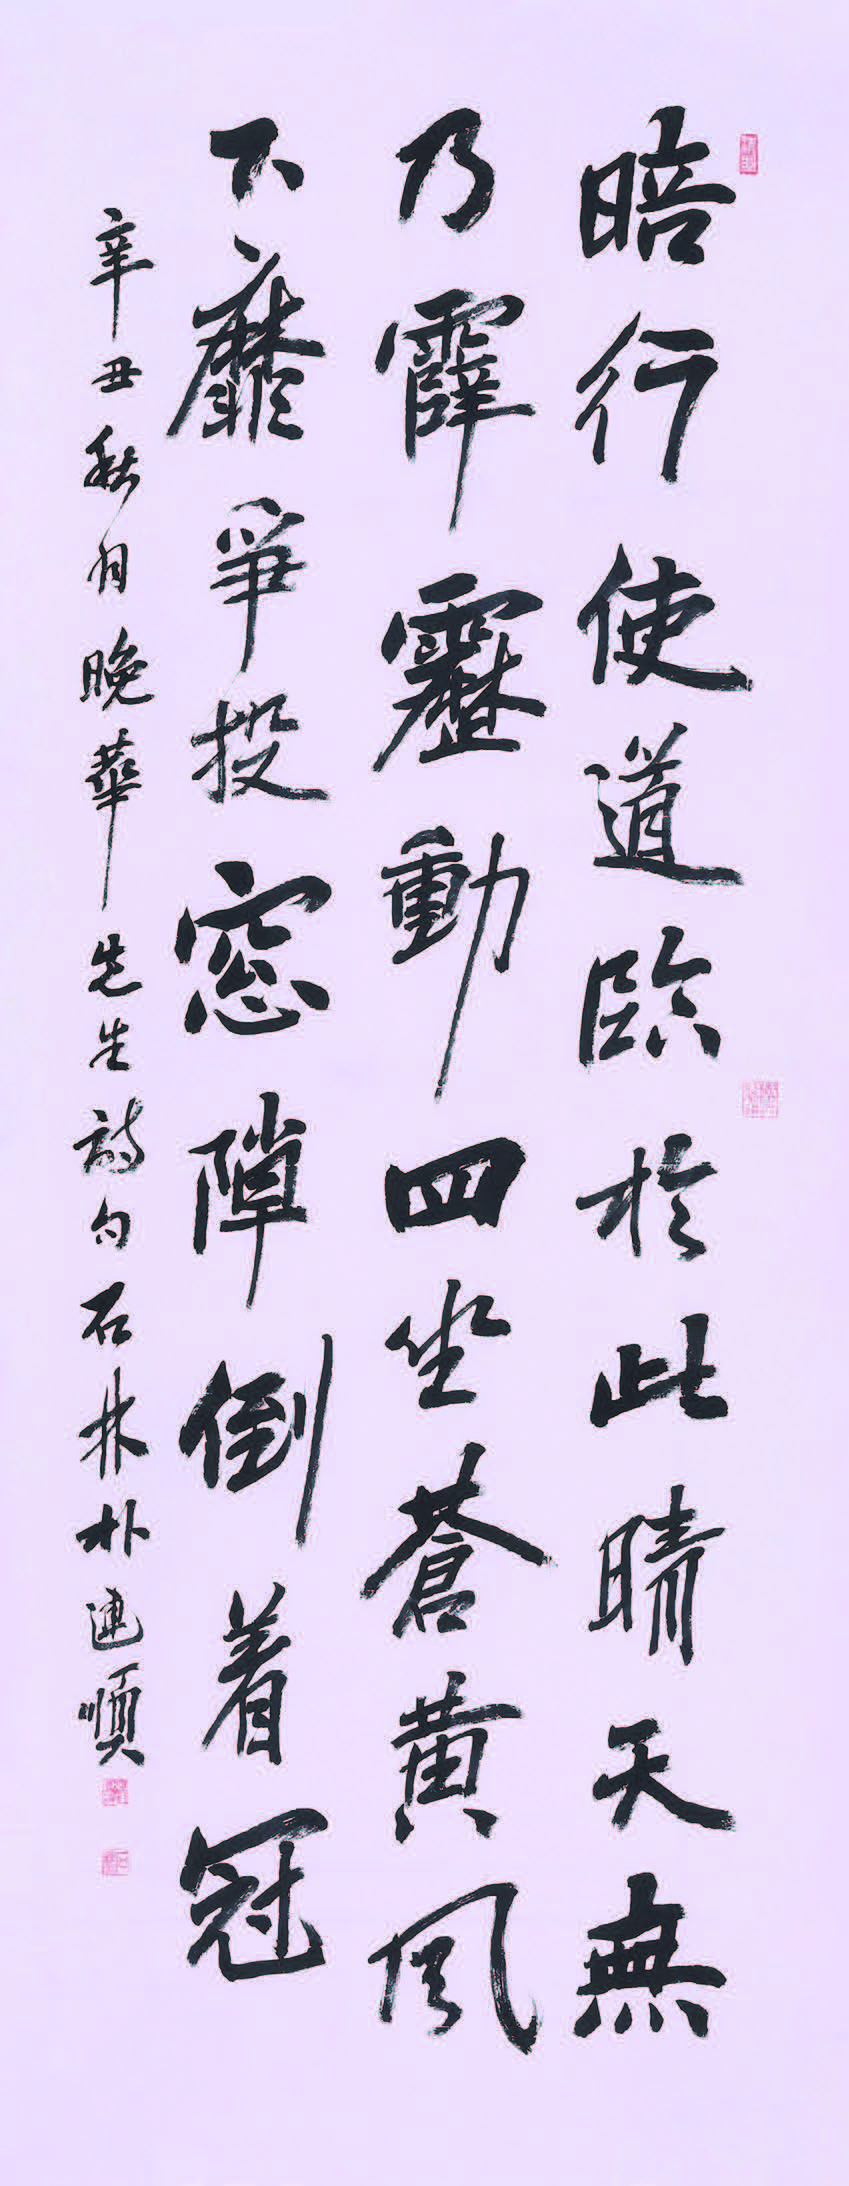 暗行使道臨於此晴天無
乃霹靂動四坐蒼黃風
下靡爭投窓障倒着冠
辛丑秋月晚華先生詩句石林朴連順